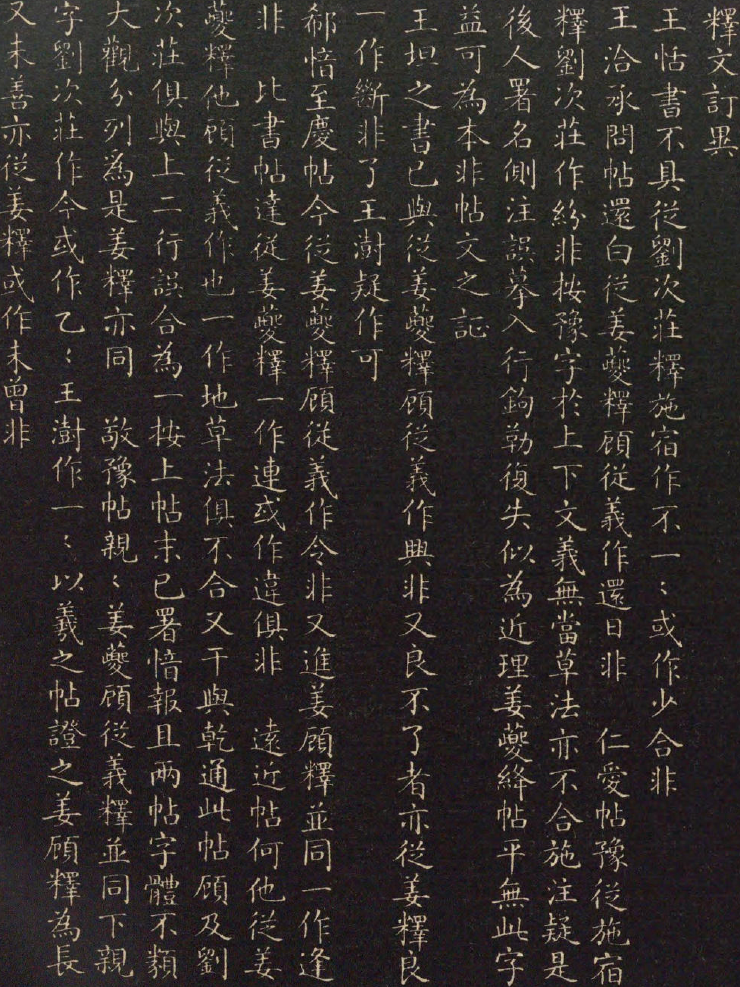 釋文訂異
王恬書不具從劉次莊釋施宿作不一〻或作少合非
王洽承問帖還白從姜夔釋顧從義作還日非　仁愛帖豫從施宿
釋劉次莊作紛非按豫字於上下文義無當草法亦不合施注疑是
後人署名側注誤摹入行鉤勒復失似為近理姜夔絳帖平無此字
益可為本非帖文之証
王坦之書已與從姜夔釋顧從義作興非又良不了者亦從姜釋良
一作斷非了王澍疑作可
郗愔至慶帖今從姜夔釋顧從義作令非又進姜顧釋並同一作逢
非　比書帖達從姜夔釋一作連或作違俱非　遠近帖何他從姜
夔釋他顧從義作也一作地草法俱不合又干與乾通此帖顧及劉
次莊俱與上二行誤合為一按上帖末已署愔報且兩帖字體不類
大觀分列為是姜釋亦同　敬豫帖親〻姜夔顧從義釋並同下親
字劉次莊作今或作乙〻王澍作一〻以羲之帖證之姜顧釋為長
又未善亦從姜釋或作未曾非